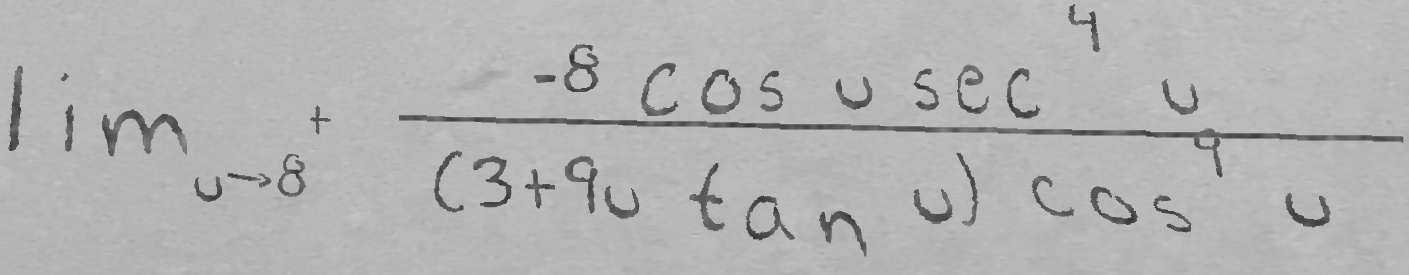 \lim_{u \to 8^+} \frac{-8 \cos u \sec^4 u}{(3+9u \tan u) \cos^9 u}